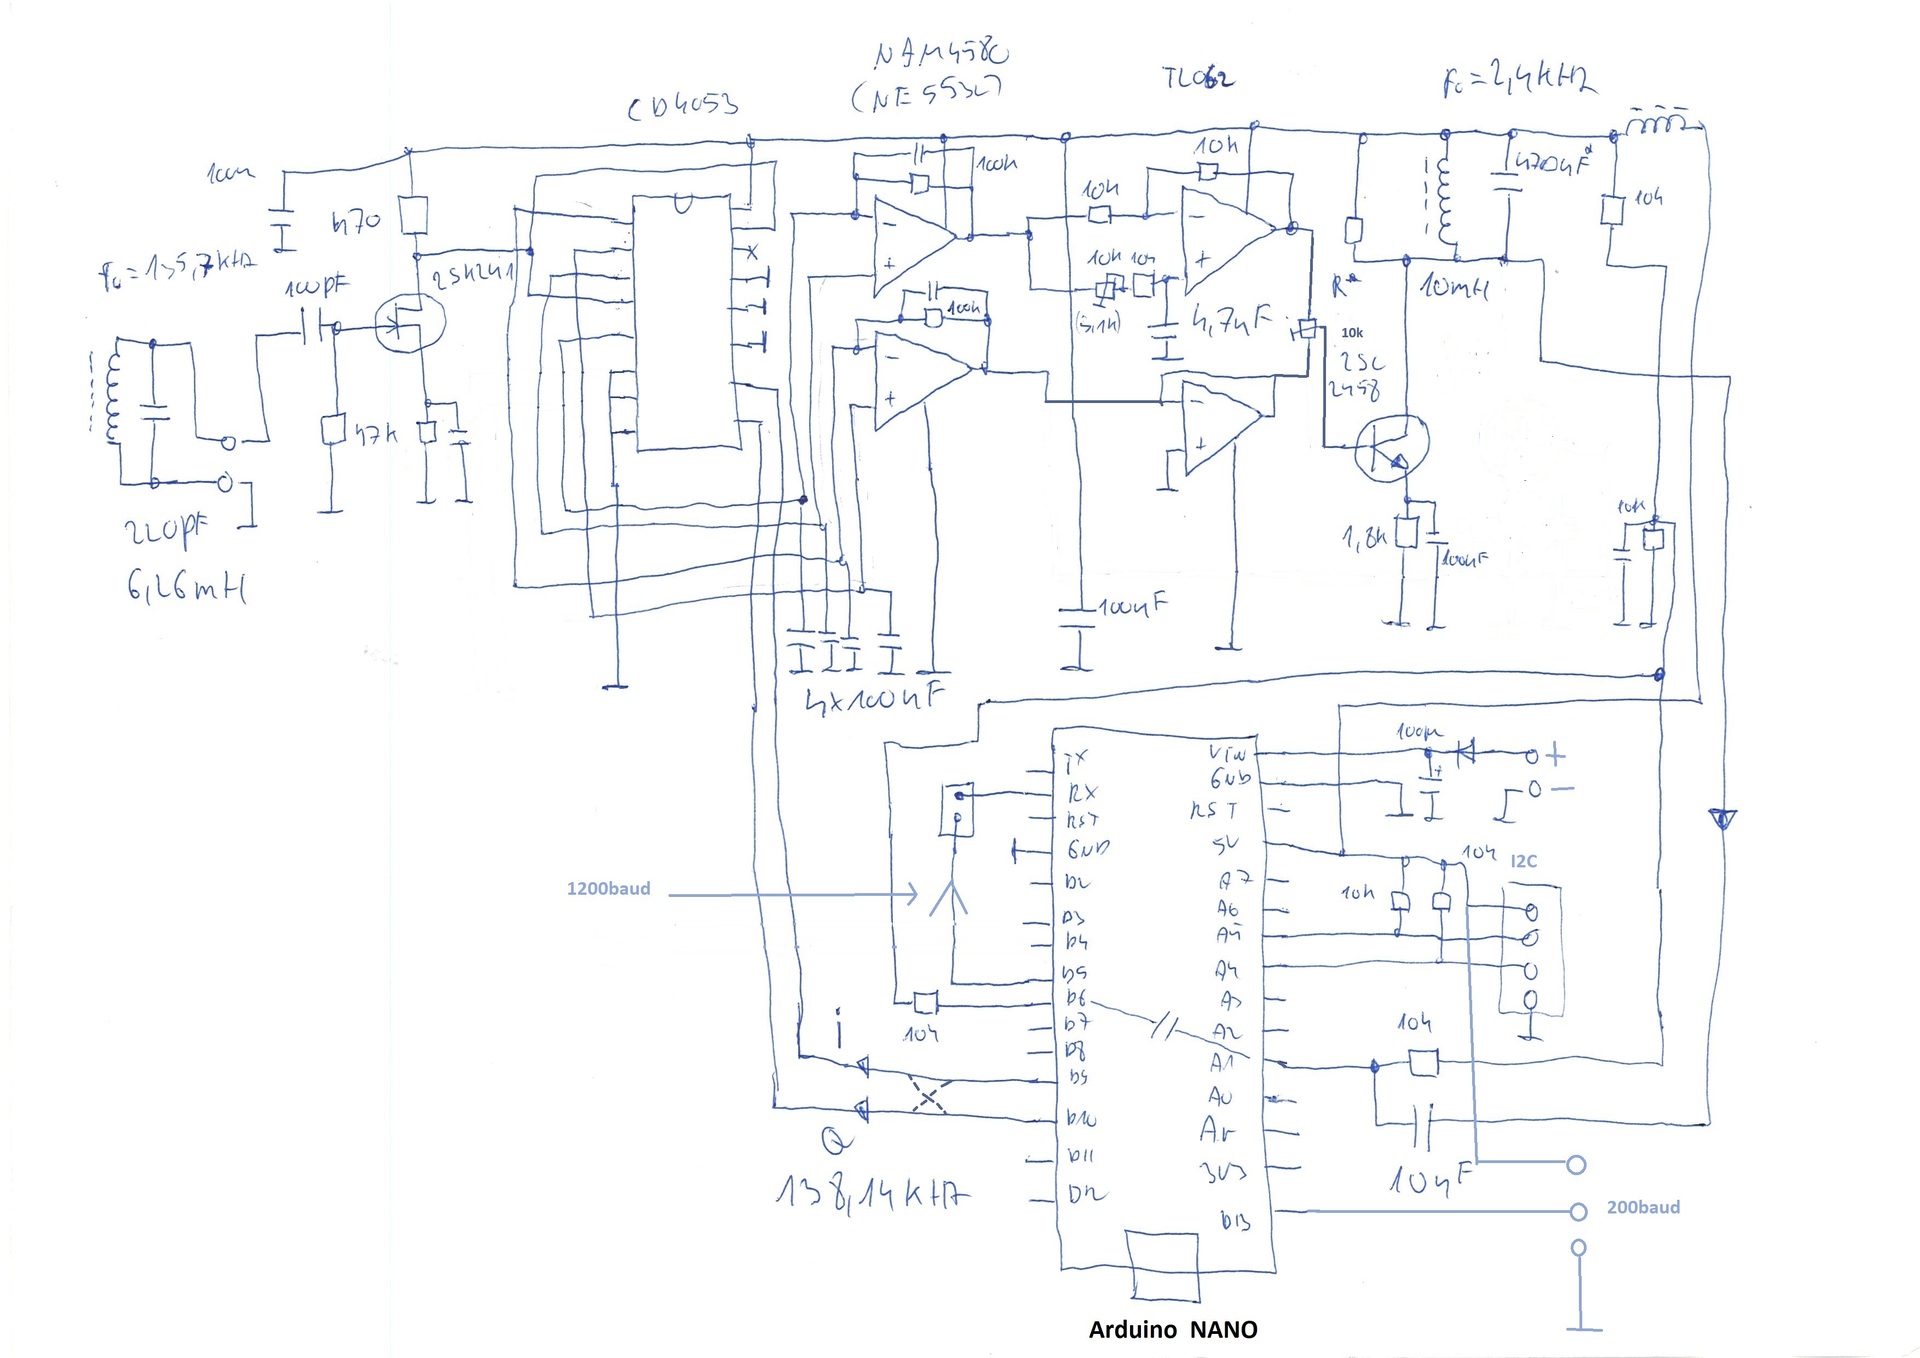 CD4053
(NE5532)
TL062
F0=2,4kHz
100n
470
100k
10k
10k
4700nF*
10k
f0=135,7kHz
100pF
2SK241
10k
10k
(5,1k)
4,7nF
R*
10mH
10k
2SC
2458
100k
47K
220pF
6,26mH
1,8k
100nF
10k
100nF
4x100nF
TX
RX
RST
GND
D2
D3
D4
D5
D6
D7
D8
D9
D10
D11
D12
VIN
GND
RST
5V
A7
A6
A5
A4
A3
A2
A1
A0
Ar
3V3
D13
100µ
+
+
−
10k
I2C
10k
1200baud
i
10k
10k
Q
138,14kHz
10nF
200baud
Arduino NANO